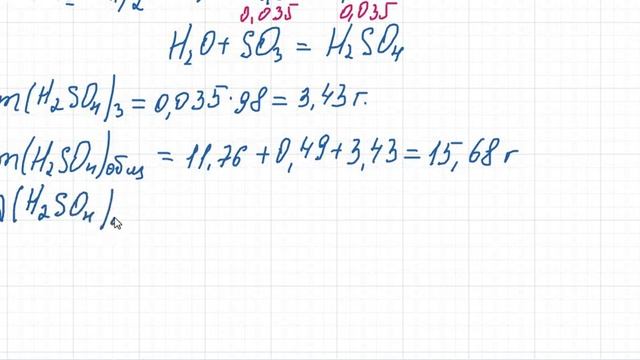 0,035 0,035
H₂O + SO₃ = H₂SO₄
m(H₂SO₄)₃ = 0,035·98 = 3,43 г.
m(H₂SO₄)общ = 11,76 + 0,49 + 3,43 = 15,68 г
(H₂SO₄)